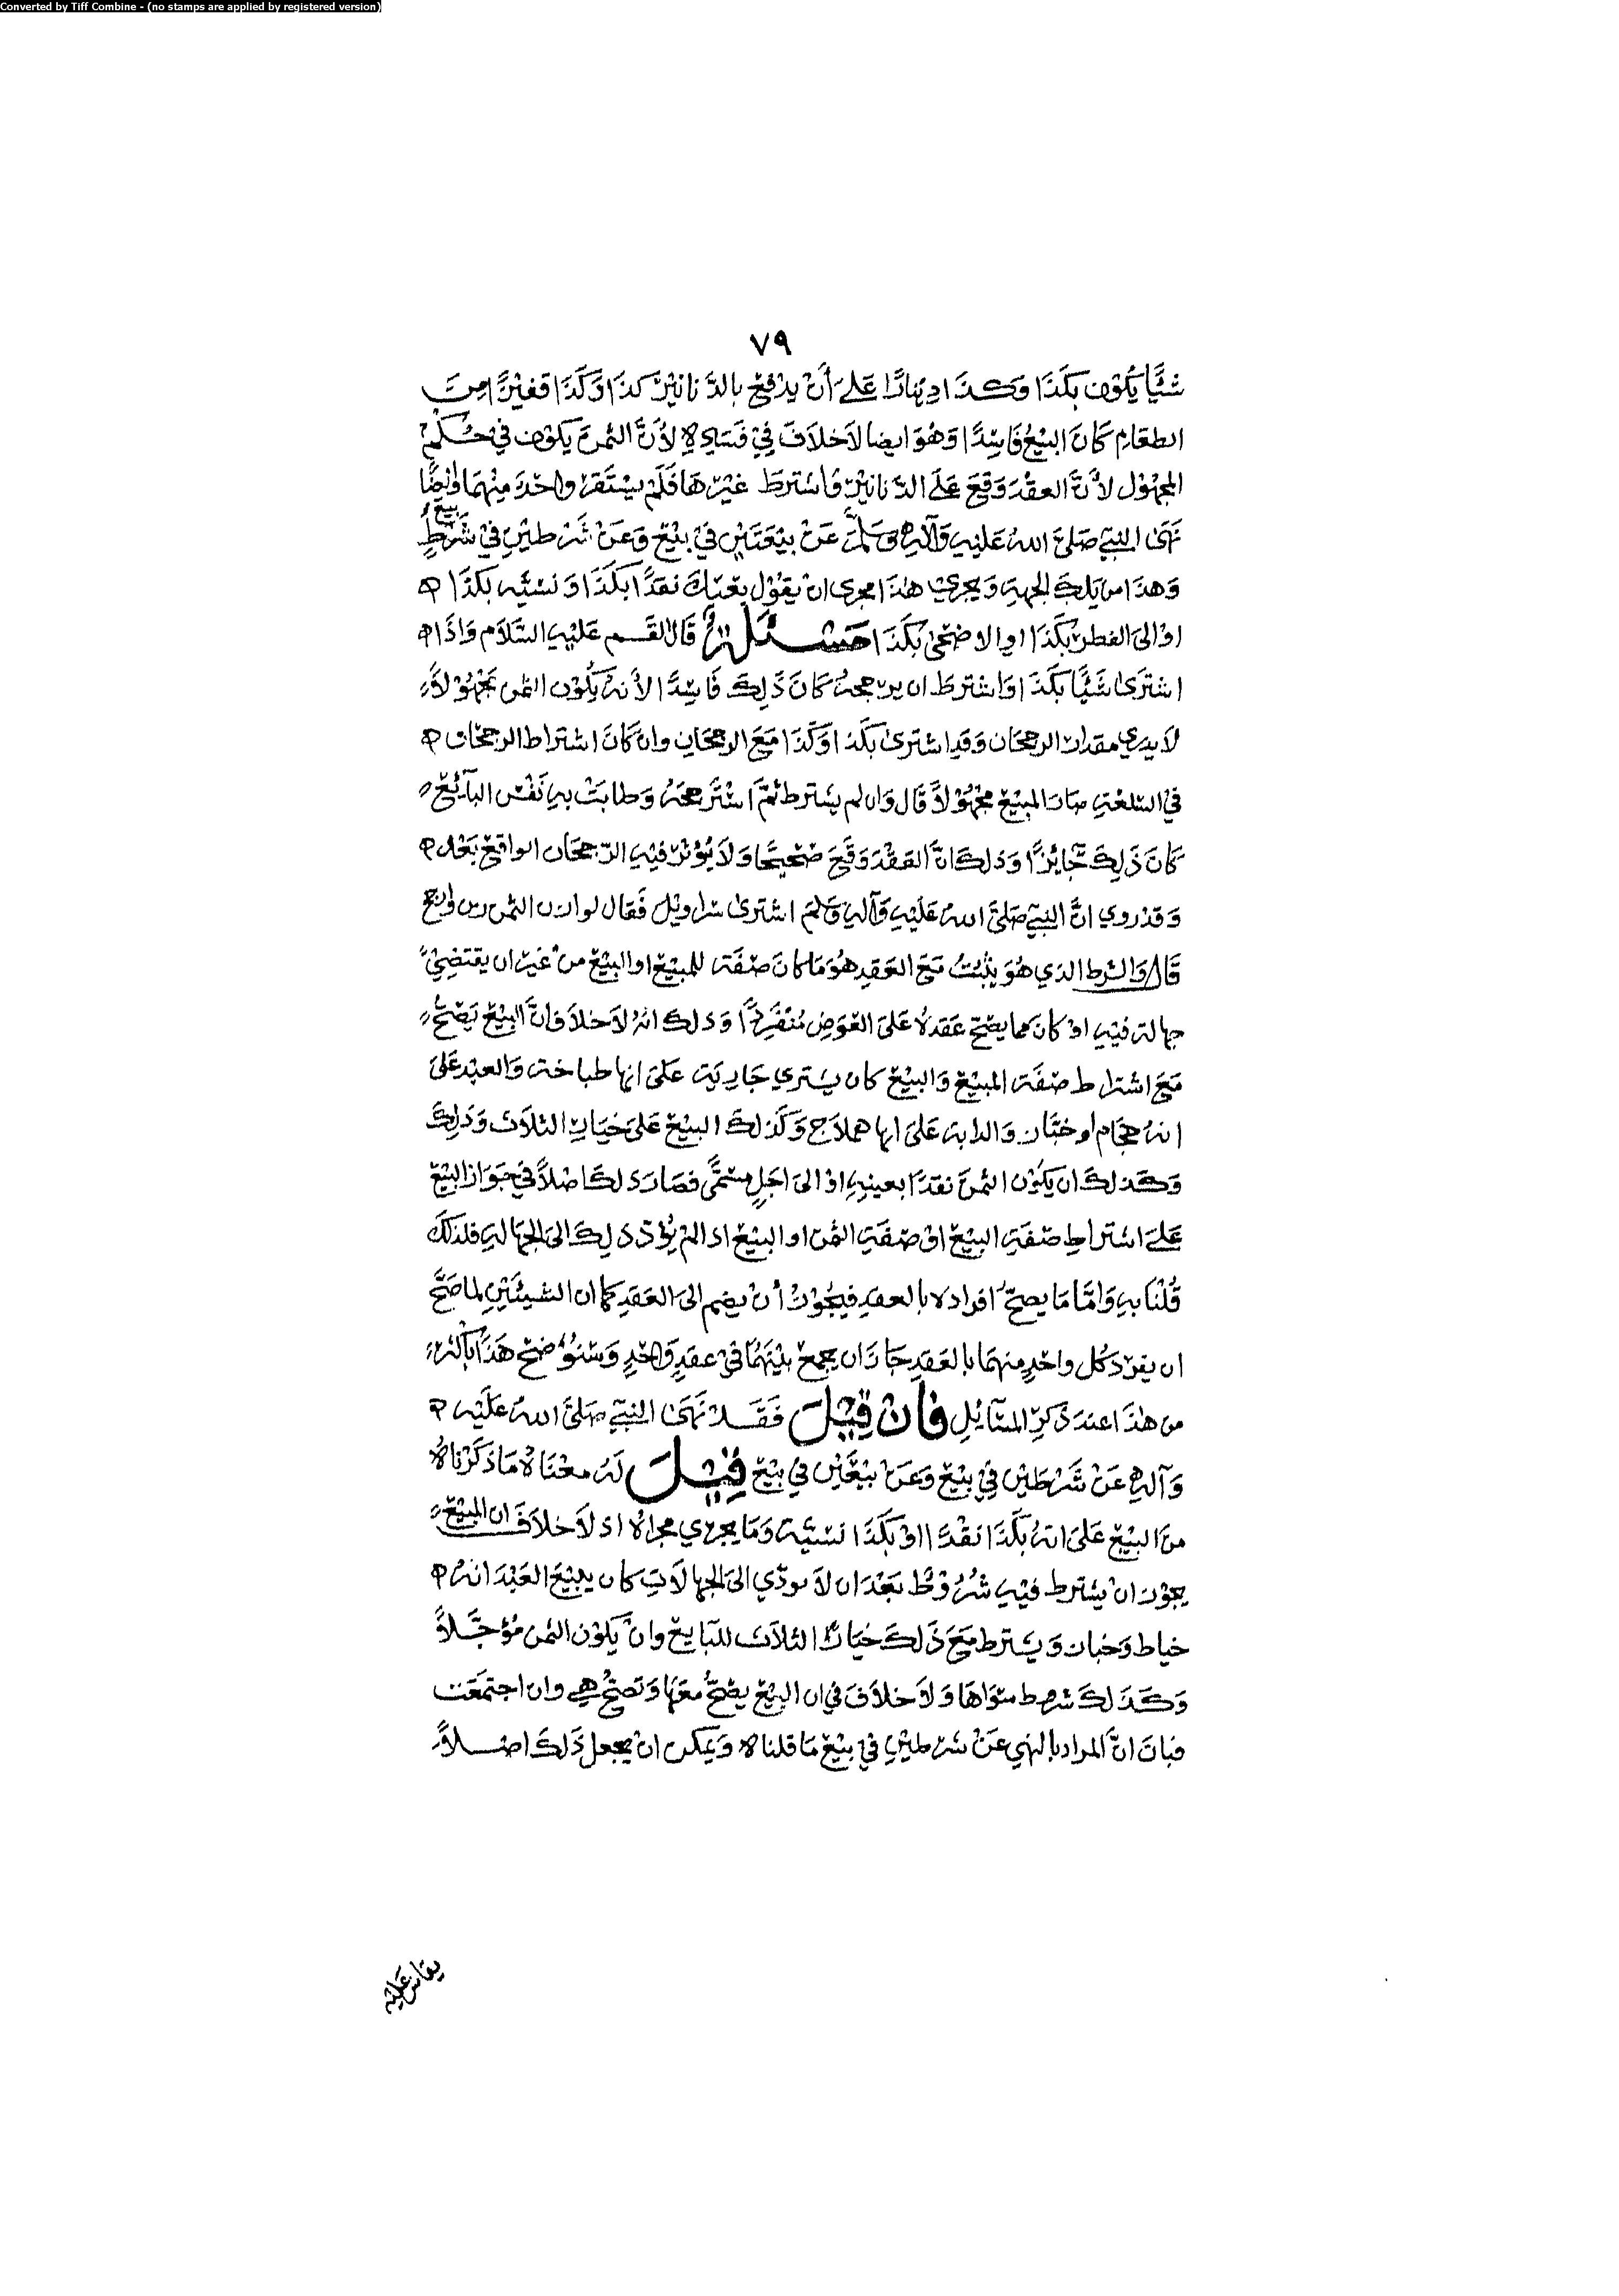 Converted by Tiff Combine - (no stamps are applied by registered version)
٧٩
شَيًّا يَكُوْن بكَذَا وَكذا دِينَارًا عَلىَ أَنْ يدْفَع بالدَّنانيْر كذا وَكَذَا قفيْزًا مِنَ
الطعَام كَانَ البَيْعُ فَاسِدًا وَهُوَ ايضا لاَ خلاَفَ فِيْ فسَادِهِ لأَنَّ الثمنَ يكوْن في حُكْم
المجهُوْل لأنَّ العقْدَ وَقعَ عَلىَ الدَّنانيْر وَاشترطَ غيْرهَا فَلَم يسْتَقرْ واحدٌ منهُمَا وَايْضًا
نَهَىَ النبِيّ صَلىَ اللهُ عَليْهِ وَآلهِ وَسَلمْ عَنْ بيْعَتَيْنِ فيْ بيْعٍ وَعَنْ شَرْطيْنِ فيْ شَرْطٍ بيْع
وَهذا من تلكَ الجهةِ وَيجري هٰذا مجرى انْ يقوْل بعْتكَ نقدًا بكَذَا وَنسْئَيه بكذَا ه
اوْ الىَ الفطر بكَذَا او الاضحَىٰ بكَذَا مَسْئَلة قَالَ القسم عَليْهِ السَّلاَم وَاذَا ه
اشتَرىَ شَيًّا بكَذَا وَاشترطَ ان يرجحهُ كَانَ ذَلِكَ فَاسِدًا لأنهُ يكُوْن الثمن مَجْهُوْلاً
لاَ يدري مقدار الرجحَان وَقد اشترىَ بكَذا وَكَذَا مَعَ الرجحَانِ وان كَانَ اشتراط الرجحَان ه
فيْ السّلعَةِ صَارَ المبيْع مجْهُوْلاً قَالَ وَان لم يشترط ثمَّ اسْتَرجحَهُ وَطابَتْ بهِ نَفْس البآئع
كَانَ ذَلِكَ جَائِزًا وَذلكَ انَّ العَقْدَ وَقَعَ صَحيْحًا وَلاَ يُؤثر فيْهِ الرّجحَان الواقع بَعْده ه
وَقدْ روي انَّ النبيّ صَلىَ اللهُ عَليْهِ وَآلهِ وَسَلم اشترىَ سَراويل فَقال لوازن الثمن زن وَارجح
قَالَ وَالشرط الذي هُوَ يثبُتُ مَعَ العَقدِ هُوَ مَا كانَ صفَة للمبيْع او البيْع من غيْر ان يقتضِيْ
جهالة فيْهِ اوْ كانَ مما يصحّ عَقدهُ عَلىَ العوَضِ مُنْفَردًا وَذلك انهُ لاَ خلاَف انَّ البيْع يَصحُّ
مَعَ اشتراط صفَة المبيْع وَالبيْع كان يشتري جَاريَة عَلىَ انها طباخة وَالعبْد عَلىَ
انهُ حجَام او ختَان وَالدابة عَلىَ انها هملاَج وَكَذلكَ البيْع عَلىَ خيَار الثلاَث وَذلِكَ
وَكَذلكَ ان يَكوْن الثمنَ نقدًا بعينهِ اوْ الىَ اجَلٍ مسَمًّى فصَار ذلكَ اصْلاً فيْ جَوَاز البيْع
عَلىَ اشتراطِ صفَةِ البيْع اوْ صفَةِ الثمن او البيْع اذا لمْ يُؤدّ ذلِكَ الىَ الجهَالةِ فلذلكَ
قُلْنَا بهِ وَامَّا مَا يصحّ افراده بالعقدِ فيَجُوْز أنْ يضم الىَ العَقدِ كما ان الشيئَيْنِ لما صَحَّ
ان يفرَد كُل واحدٍ منهمَا بالعَقدِ جَازَ ان يجمعَ بيْنَهُمَا فيْ عقدٍ وَاحدٍ وَسَنوُضح هَذَا بأكثر
من هٰذا عندَ ذكرِ المسَآئلِ فان قيْلَ فَقَدْ نَهَىَ النبِيّ صَلىَ اللهُ عَلَيْه ه
وَآلهِ عَنْ شَرْطَيْن فيْ بيْعٍ وَعَنْ بيْعَتَيْن فيْ بيْعٍ قيْلَ لَهُ معْنَاهُ مَا ذكَرْنَاهُ
منَ البيْع عَلىَ انهُ بكَذَا نقْدًا اوْ بكَذَا نسْئَة وَمَا يجري مجراهُ اذ لاَ خلاَفَ ان المبيْع
يجوْز ان يشترط فيْهِ شُرُوْطٌ بَعْدَ ان لاَ تودّي الىَ الجهالاَتِ كان يبيْعَ العَبْد انهُ ه
خياط وَخبان وَيشترط مَعَ ذَلكَ خيَارُ الثلاَث للبَايع وانْ يكوْن الثمن مُؤجَّلاً
وَكَذَلكَ شرط سوَاهَا وَلاَ خلاَفَ في ان البيْع يصَحُّ معَهَا وَتصَحُّ هِي وان اجتمَعَت
فبَانَ انَّ المراد بالنهي عَنْ شرطيْنِ فيْ بيْع مَا قلناه وَيمكن انْ يجعلَ ذَلكَ اصْلاً
يقاس عَليْه